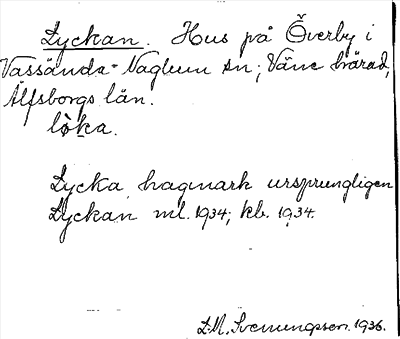 Lyckan. Hus på Överby i
Vassända-Naglum sn; Väne härad,
Älfsborgs län.
lòka.
Lycka, hagmark ursprungligen
Lyckan ml. 1934; kb. 1934.
D.M. Svenungsson. 1936.